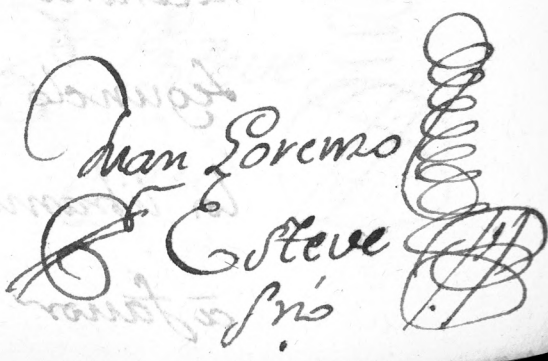 Juan Lorenzo
Esteve
srio